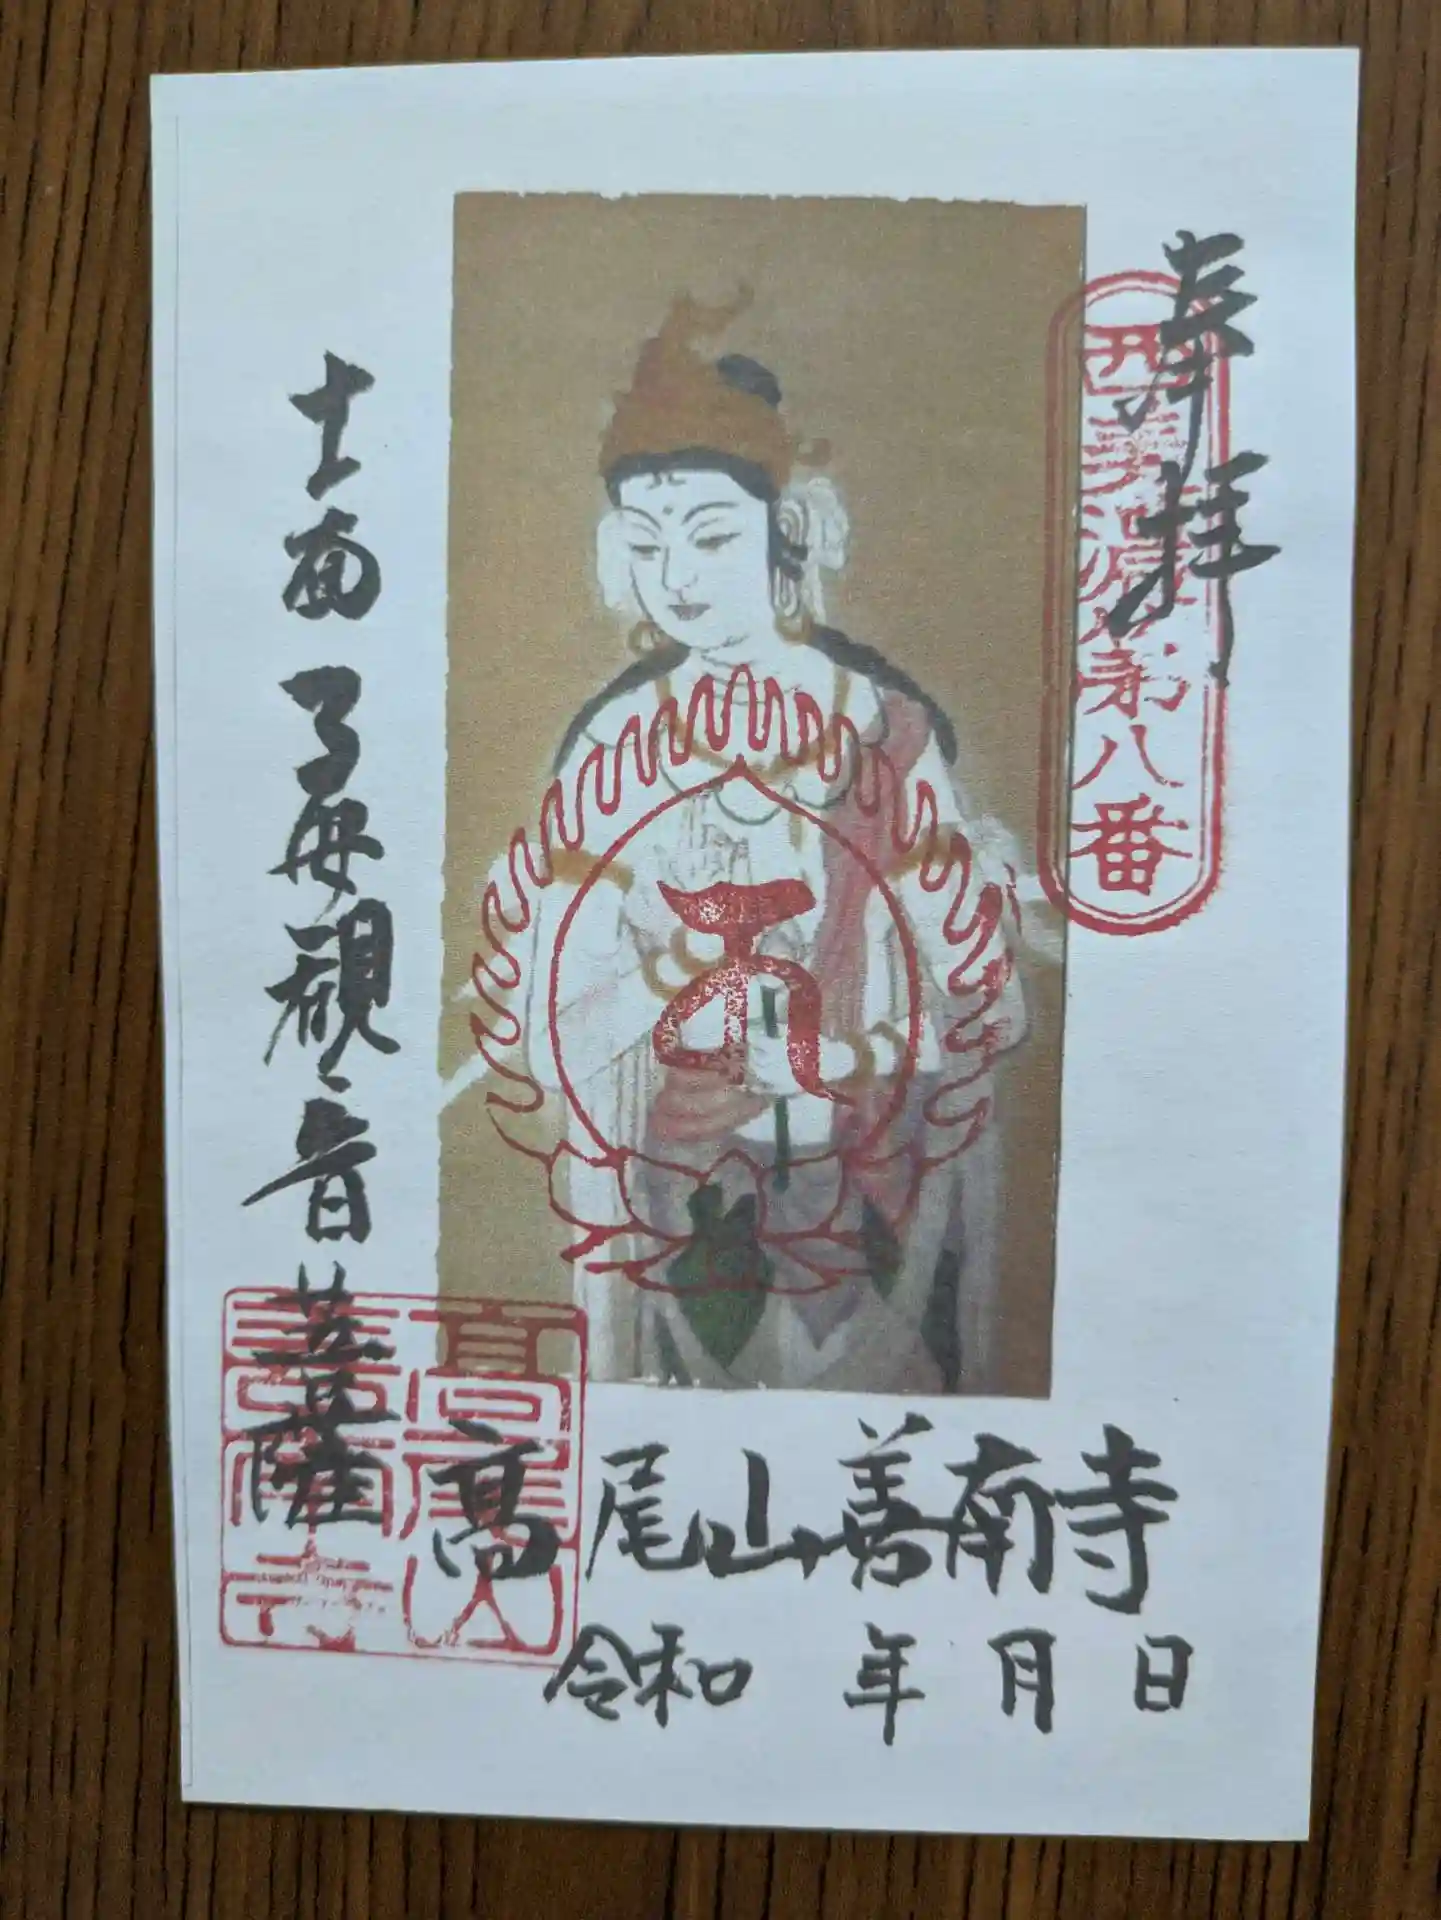 奉拝
西美濃第八番
十一面子安観音菩薩
高尾山善南寺
令和 年 月 日
高尾山
善南寺